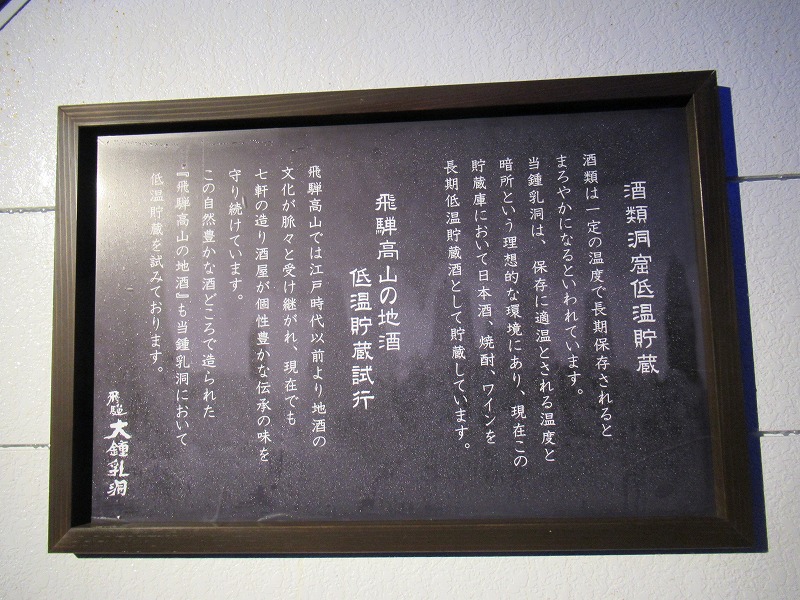 酒類洞窟低温貯蔵
酒類は一定の温度で長期保存されると
まろやかになるといわれています。
当鍾乳洞は、保存に適温とされる温度と
暗所という理想的な環境にあり、現在この
貯蔵庫において日本酒、焼酎、ワインを
長期低温貯蔵酒として貯蔵しています。
飛騨高山の地酒
低温貯蔵試行
飛騨高山では江戸時代以前より地酒の
文化が脈々と受け継がれ、現在でも
七軒の造り酒屋が個性豊かな伝承の味を
守り続けています。
この自然豊かな酒どころで造られた
『飛騨高山の地酒』も当鍾乳洞において
低温貯蔵を試みております。
飛騨大鍾乳洞